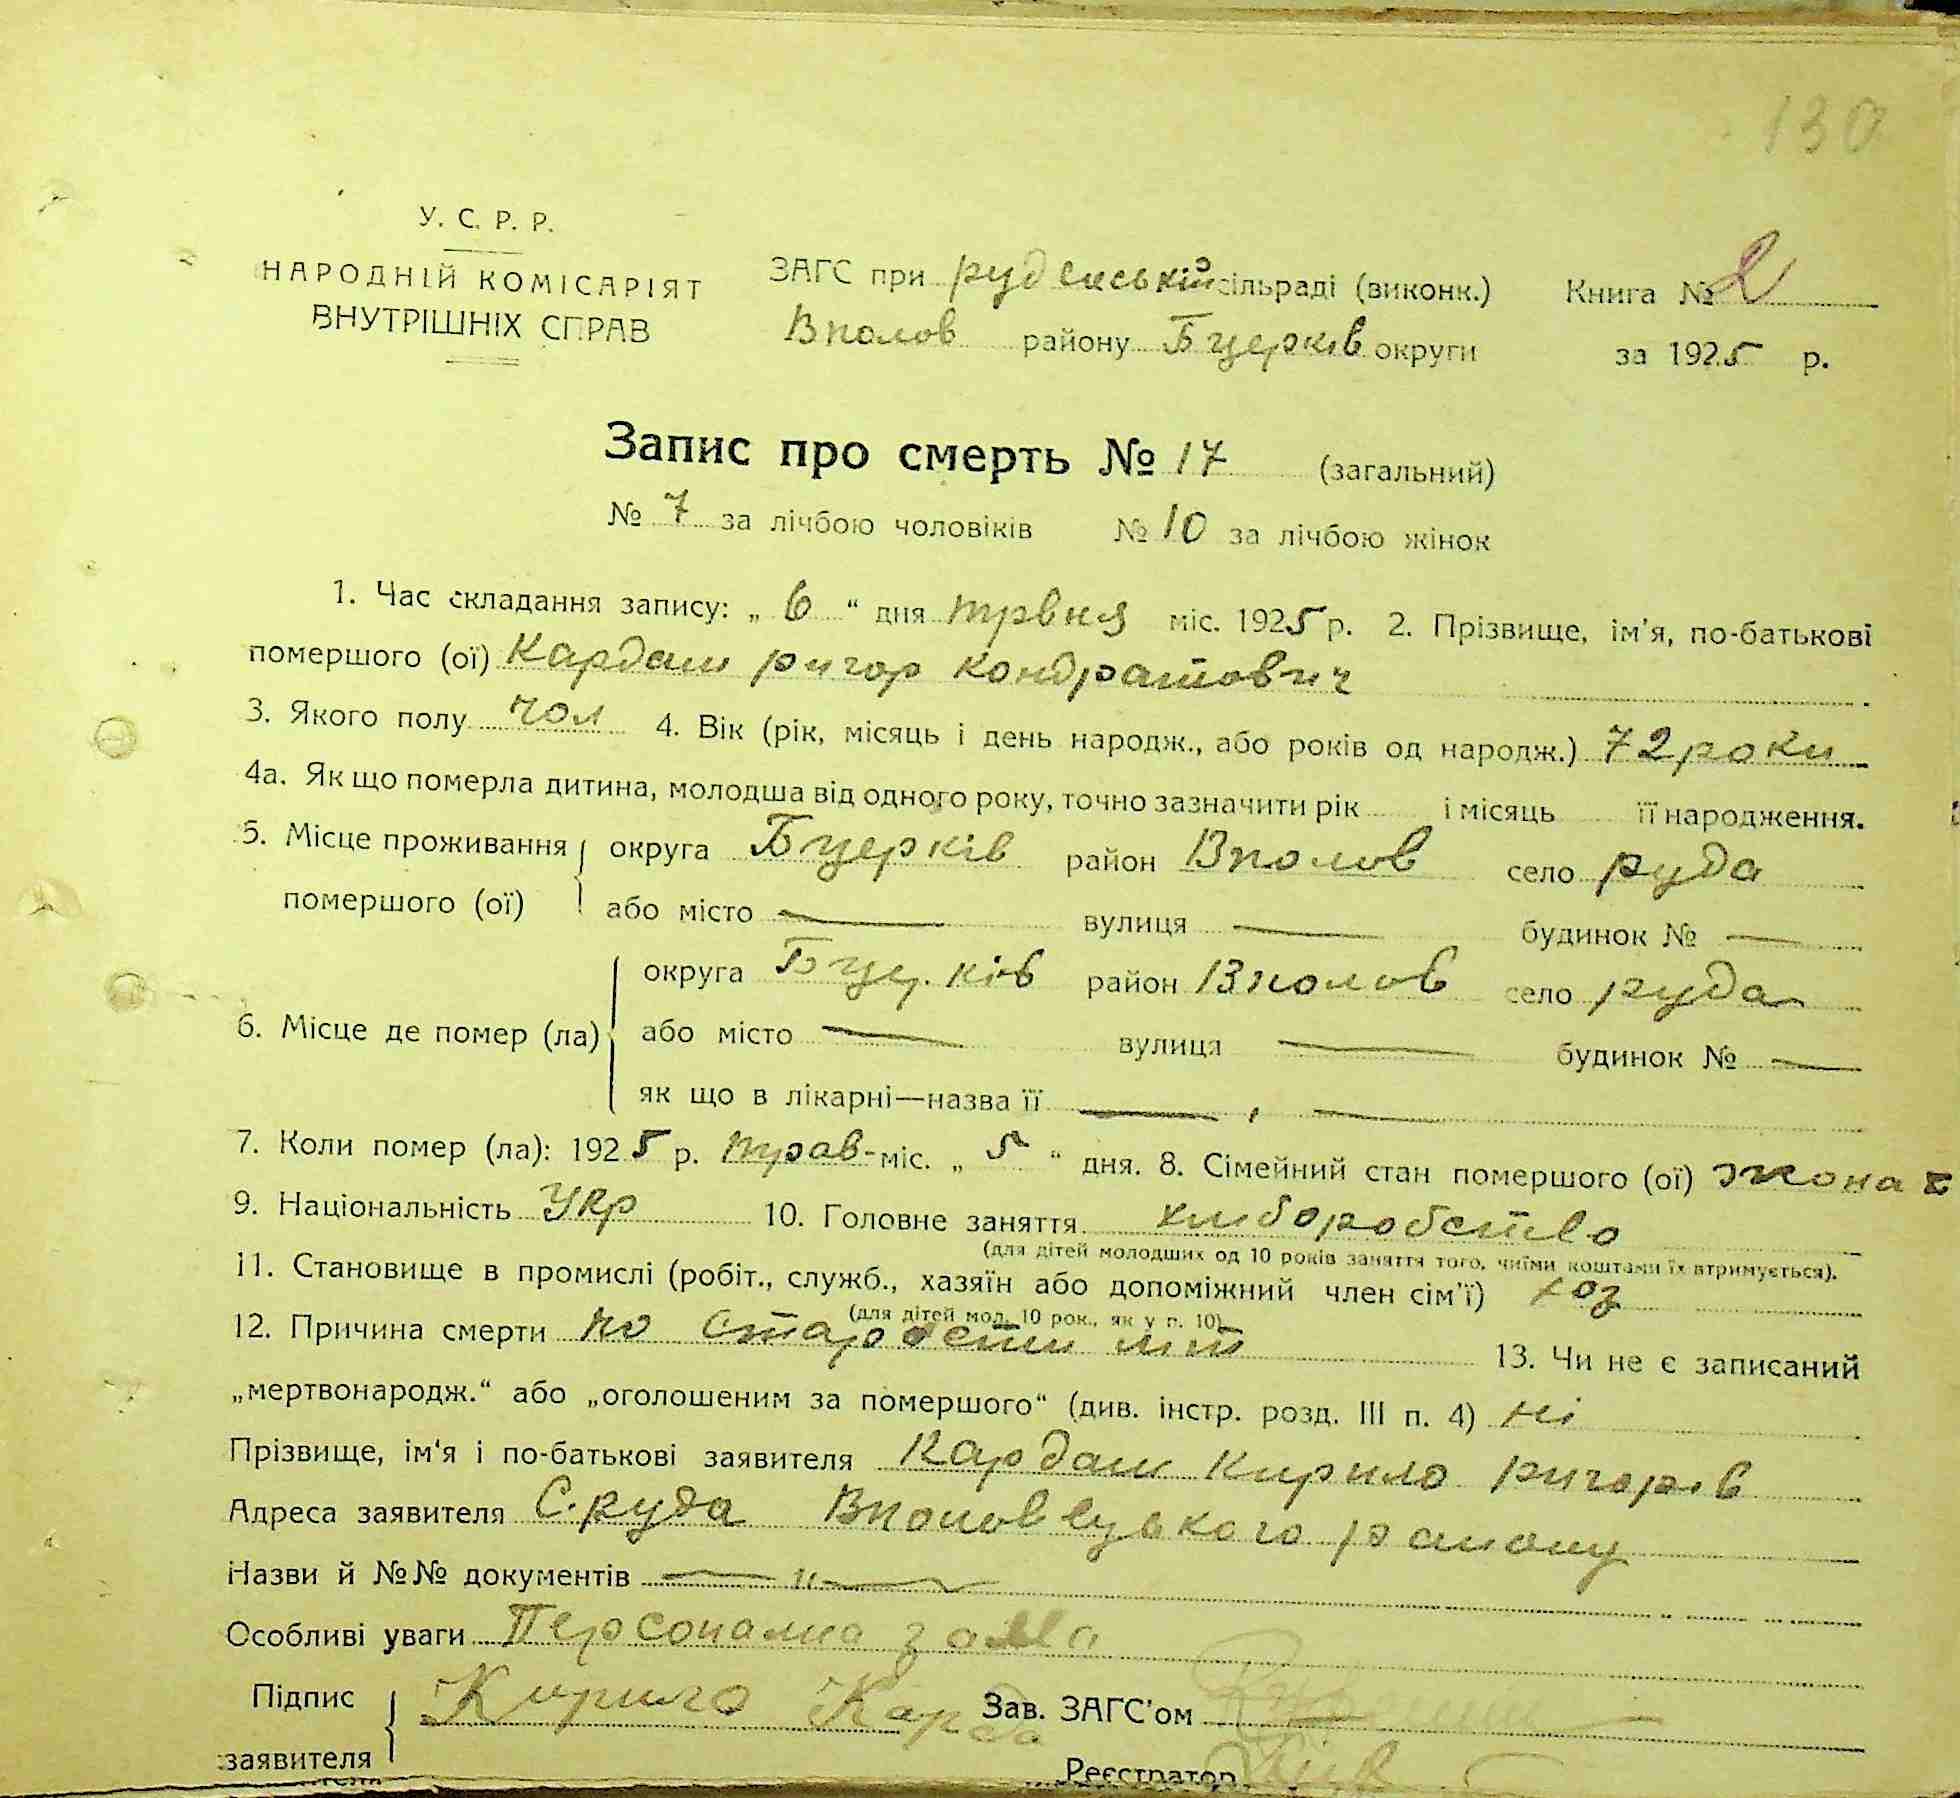 130
У. С. Р. Р.
НАРОДНІЙ КОМІСАРІЯТ
ВНУТРІШНІХ СПРАВ
ЗАГС при руденській сільраді (виконк.) Книга № 2
Вполов району Бцерків округи за 1925 р.
Запис про смерть № 17 (загальний)
№ 7 за лічбою чоловіків № 10 за лічбою жінок
1. Час складання запису: „ 6 “ дня трвня міс. 1925 р. 2. Прізвище, ім'я, по-батькові
помершого (ої) Кардаш ригор Кондратович
3. Якого полу чол 4. Вік (рік, місяць і день народж., або років од народж.) 72 роки
4а. Як що померла дитина, молодша від одного року, точно зазначити рік і місяць її народження.
5. Місце проживання округа Бцерків район Вполов село руда
помершого (ої) або місто — вулиця — будинок № —
округа Бцер. ків район Вполов село руда
6. Місце де помер (ла) або місто — вулиця — будинок № —
як що в лікарні—назва її —
7. Коли помер (ла): 1925 р. трав- міс. „ 5 “ дня. 8. Сімейний стан помершого (ої) жонат
9. Національність Укр 10. Головне заняття хліборобство
(для дітей молодших од 10 років заняття того, чиїми коштами їх втримується).
11. Становище в промислі (робіт., служб., хазяїн або допоміжний член сім'ї) хоз
(для дітей мол. 10 рок., як у п. 10)
12. Причина смерти по старости літ 13. Чи не є записаний
„мертвонародж.“ або „оголошеним за помершого“ (див. інстр. розд. III п. 4) ні
Прізвище, ім'я і по-батькові заявителя Кардаш Кирило ригорів
Адреса заявителя С. руда Вполовецького району
Назви й №№ документів — „ —
Особливі уваги Персонална заява
Підпис Кирило Карда Зав. ЗАГС'ом
заявителя Реєстратор